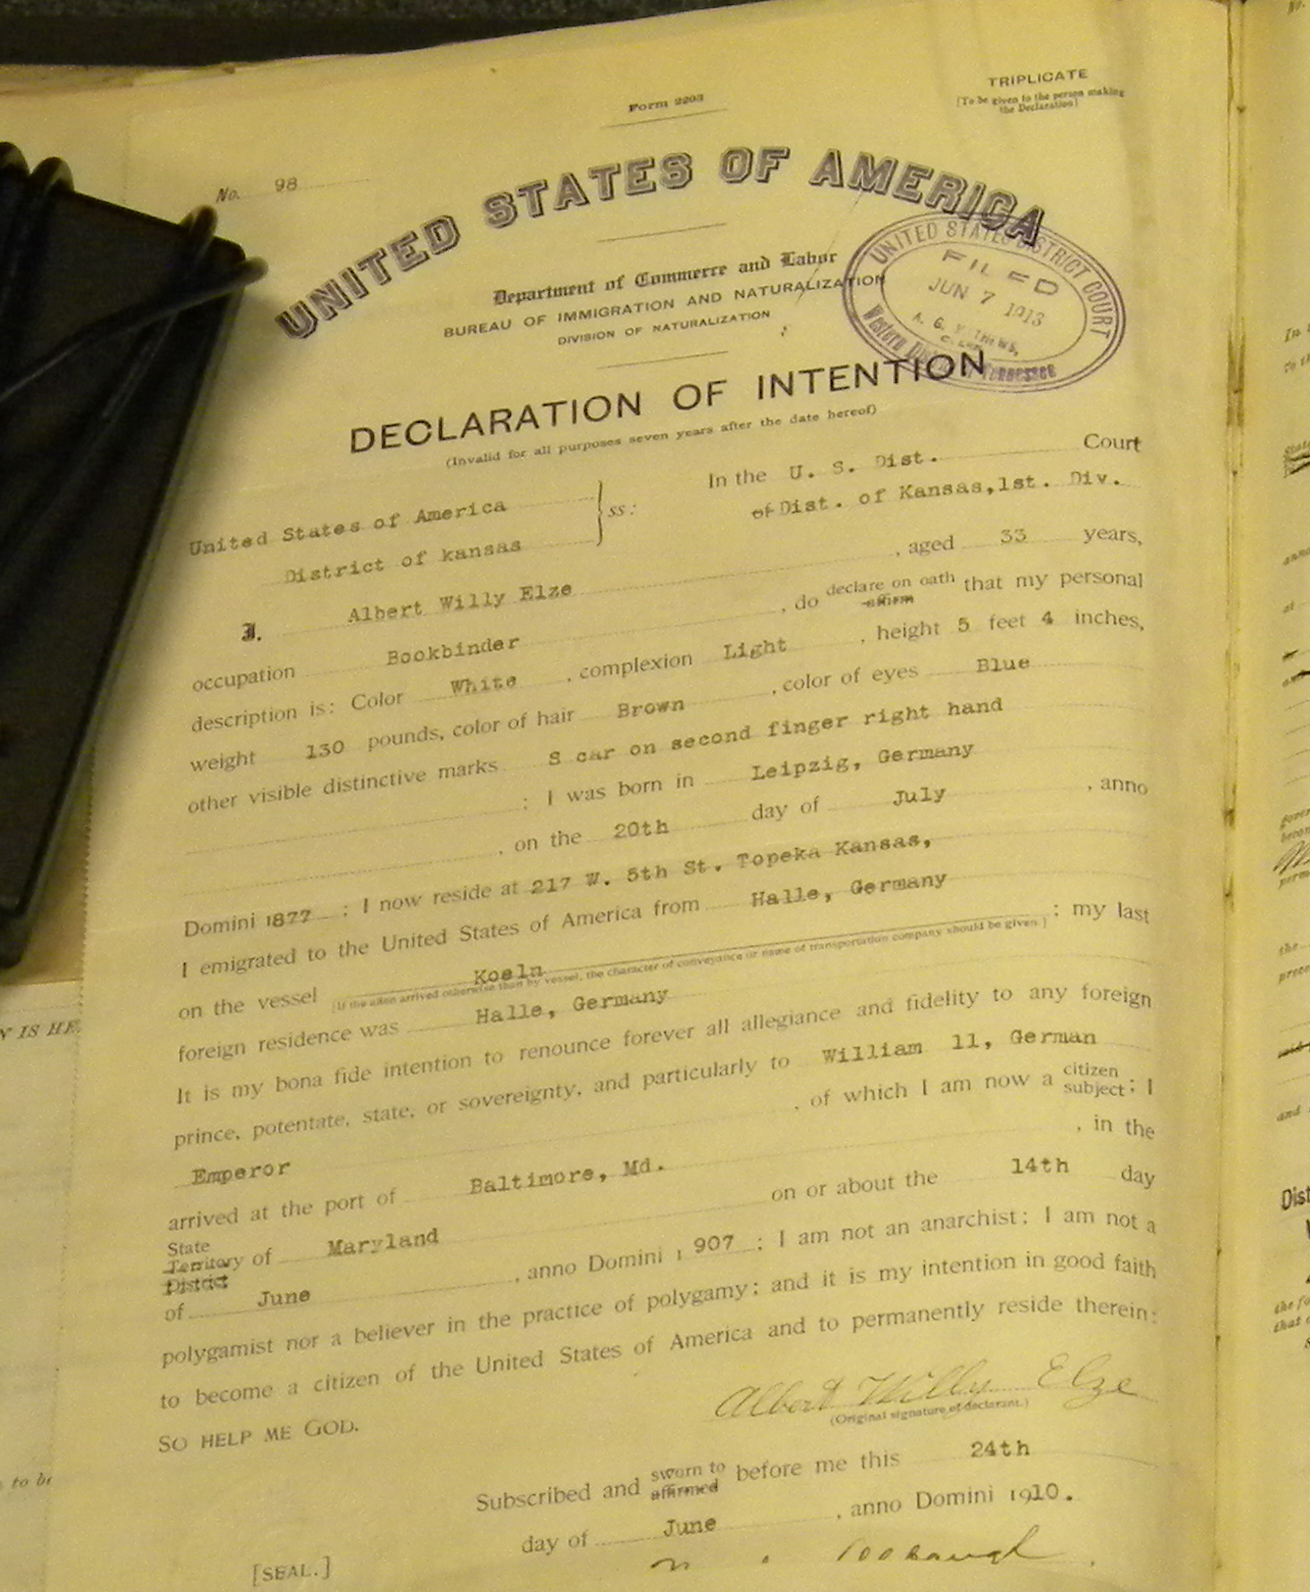 TRIPLICATE
[To be given to the person making
the Declaration]
Form 2203
No. 98
UNITED STATES OF AMERICA
Department of Commerce and Labor
BUREAU OF IMMIGRATION AND NATURALIZATION
DIVISION OF NATURALIZATION
UNITED STATES DISTRICT COURT
FILED
JUN 7 1913
Western Tennessee
DECLARATION OF INTENTION
(Invalid for all purposes seven years after the date hereof)
United States of America
District of kansas
ss:
In the U. S. Dist. Court
of Dist. of Kansas,1st. Div.
I, Albert Willy Elze, aged 33 years,
occupation Bookbinder, do declare on oath affirm that my personal
description is: Color White, complexion Light, height 5 feet 4 inches,
weight 130 pounds, color of hair Brown, color of eyes Blue
other visible distinctive marks S car on second finger right hand
; I was born in Leipzig, Germany
, on the 20th day of July, anno
Domini 1877 ; I now reside at 217 W. 5th St. Topeka Kansas,
I emigrated to the United States of America from Halle, Germany
on the vessel Koeln ; my last
[If the alien arrived otherwise than by vessel, the character of conveyance or name of transportation company should be given.]
foreign residence was Halle, Germany
It is my bona fide intention to renounce forever all allegiance and fidelity to any foreign
prince, potentate, state, or sovereignty, and particularly to William 11, German
Emperor, of which I am now a citizen subject; I
arrived at the port of Baltimore, Md., in the
State Territory District of Maryland on or about the 14th day
of June, anno Domini 1 907 ; I am not an anarchist; I am not a
polygamist nor a believer in the practice of polygamy; and it is my intention in good faith
to become a citizen of the United States of America and to permanently reside therein:
SO HELP ME GOD.
Albert Willy Elze
(Original signature of declarant.)
Subscribed and sworn to affirmed before me this 24th
day of June, anno Domini 1910.
[SEAL.]
Y IS HE
to be
Dist